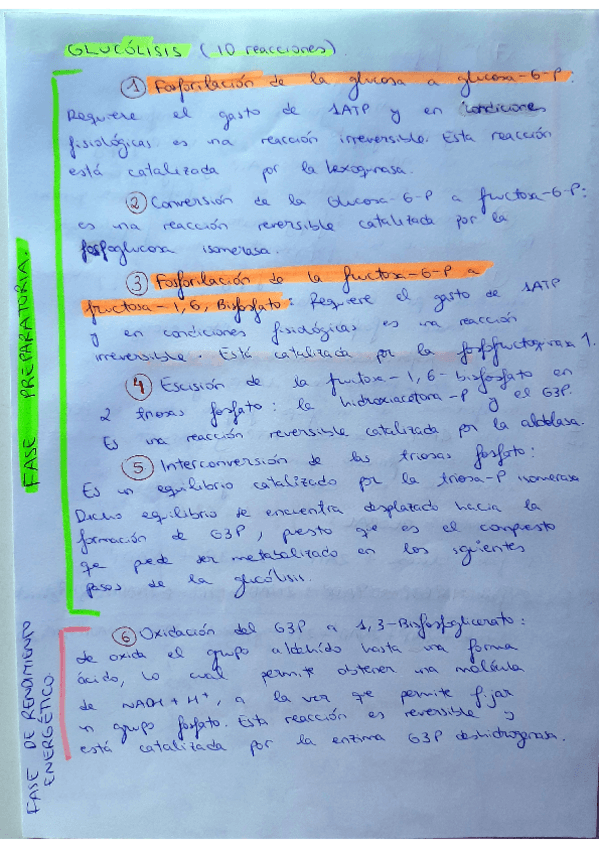 GLUCÓLISIS (10 reacciones).
① Fosforilación de la glucosa a glucosa-6-P:
Requiere el gasto de 1ATP y en condiciones
fisiológicas es una reacción irreversible. Esta reacción
está catalizada por la hexoquinasa.
② Conversión de la Glucosa-6-P a fructosa-6-P:
es una reacción reversible catalizada por la
fosfoglucosa isomerasa.
③ Fosforilación de la fructosa-6-P a
fructosa-1,6, Bisfosfato: Requiere el gasto de 1ATP
y en condiciones fisiológicas es una reacción
irreversible. Está catalizada por la fosfofructoquinasa 1.
④ Escisión de la fructosa-1,6-bisfosfato en
2 triosas fosfato: la hidroxiacetona-P y el G3P.
Es una reacción reversible catalizada por la aldolasa.
⑤ Interconversión de las triosas fosfato:
Es un equilibrio catalizado por la triosa-P isomerasa
Dicho equilibrio se encuentra desplazado hacia la
formación de G3P, puesto que es el compuesto
que puede ser metabolizado en los siguientes
pasos de la glucólisis.
FASE PREPARATORIA.
⑥ Oxidación del G3P a 1,3-Bisfosfoglicerato:
se oxida el grupo aldehído hasta una forma
ácido, lo cual permite obtener una molécula
de NADH + H⁺, a la vez que permite fijar
un grupo fosfato. Esta reacción es reversible y
está catalizada por la enzima G3P deshidrogenasa.
FASE DE RENDIMIENTO
ENERGÉTICO.